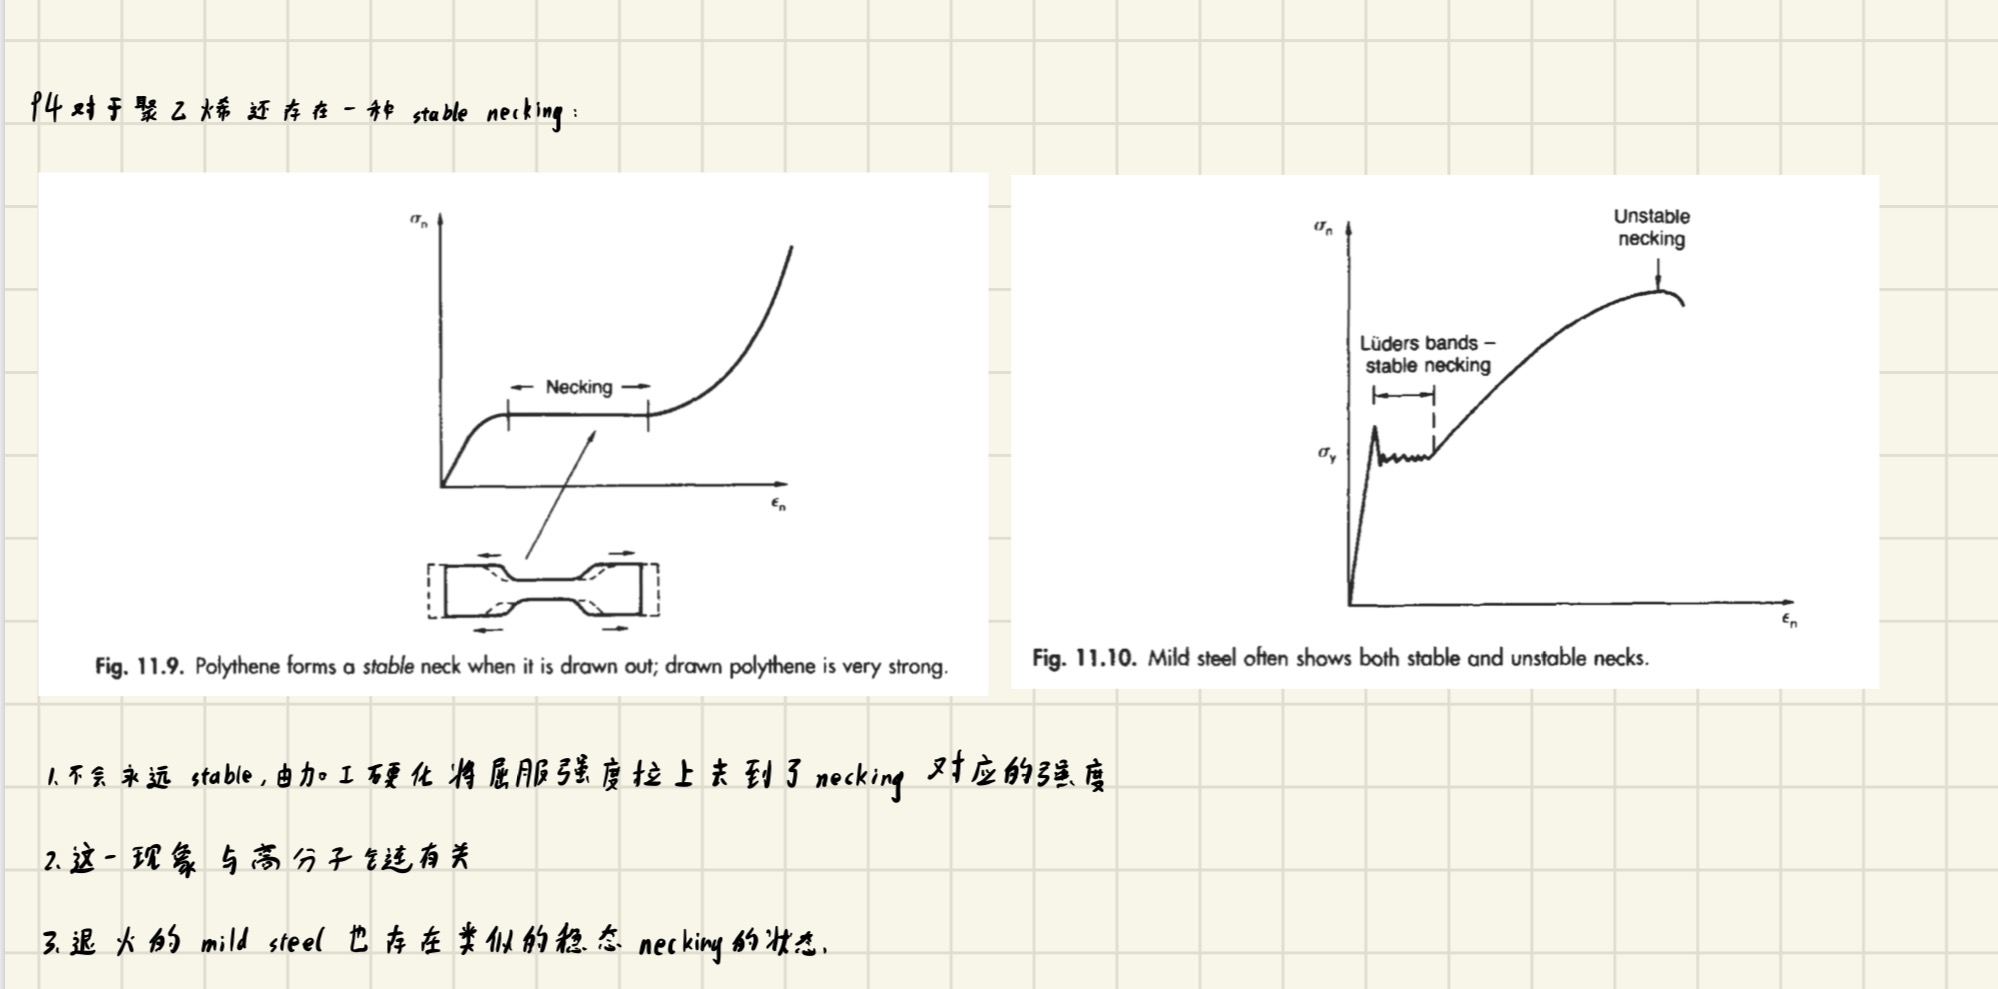 P4 对于聚乙烯还存在一种 stable necking:
σn
Necking
εn
Fig. 11.9. Polythene forms a stable neck when it is drawn out; drawn polythene is very strong.
σn
Unstable
necking
Lüders bands –
stable necking
σy
εn
Fig. 11.10. Mild steel often shows both stable and unstable necks.
1. 不会永远 stable, 由加工硬化将屈服强度拉上去到了 necking 对应的强度
2. 这一现象与高分子链有关
3. 退火的 mild steel 也存在类似的稳态 necking 的状态.